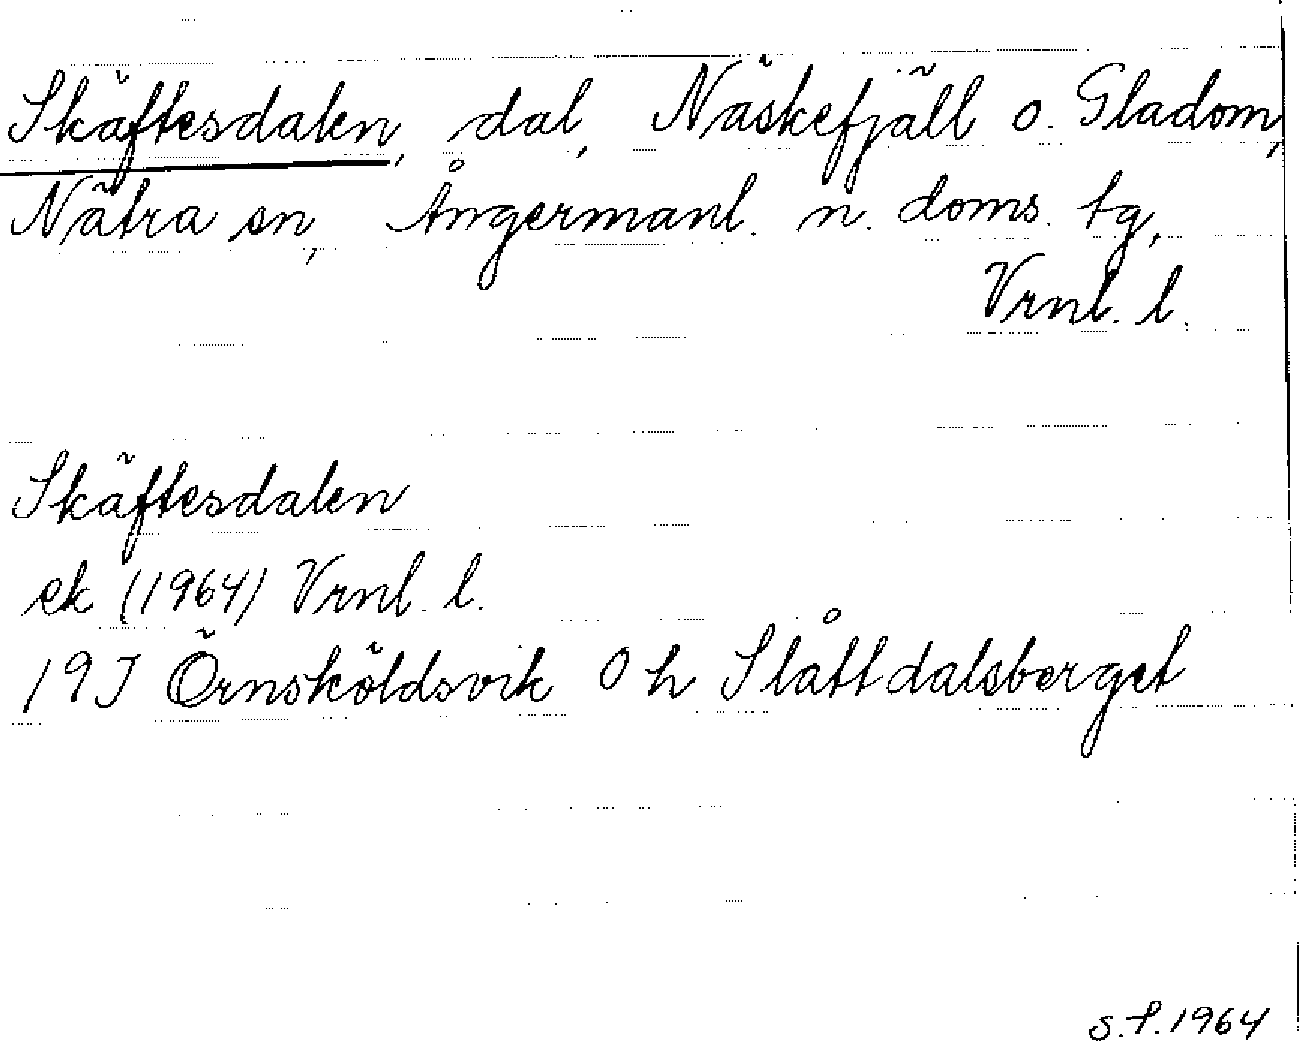 Skäftesdalen, dal, Näskefjäll o. Gladom,
Nätra sn, Ångermanl. n. doms. tg,
Vrnl. l.
Skäftesdalen
ek (1964) Vrnl. l.
19J Örnsköldsvik O h Slåttdalsberget
S.P. 1964